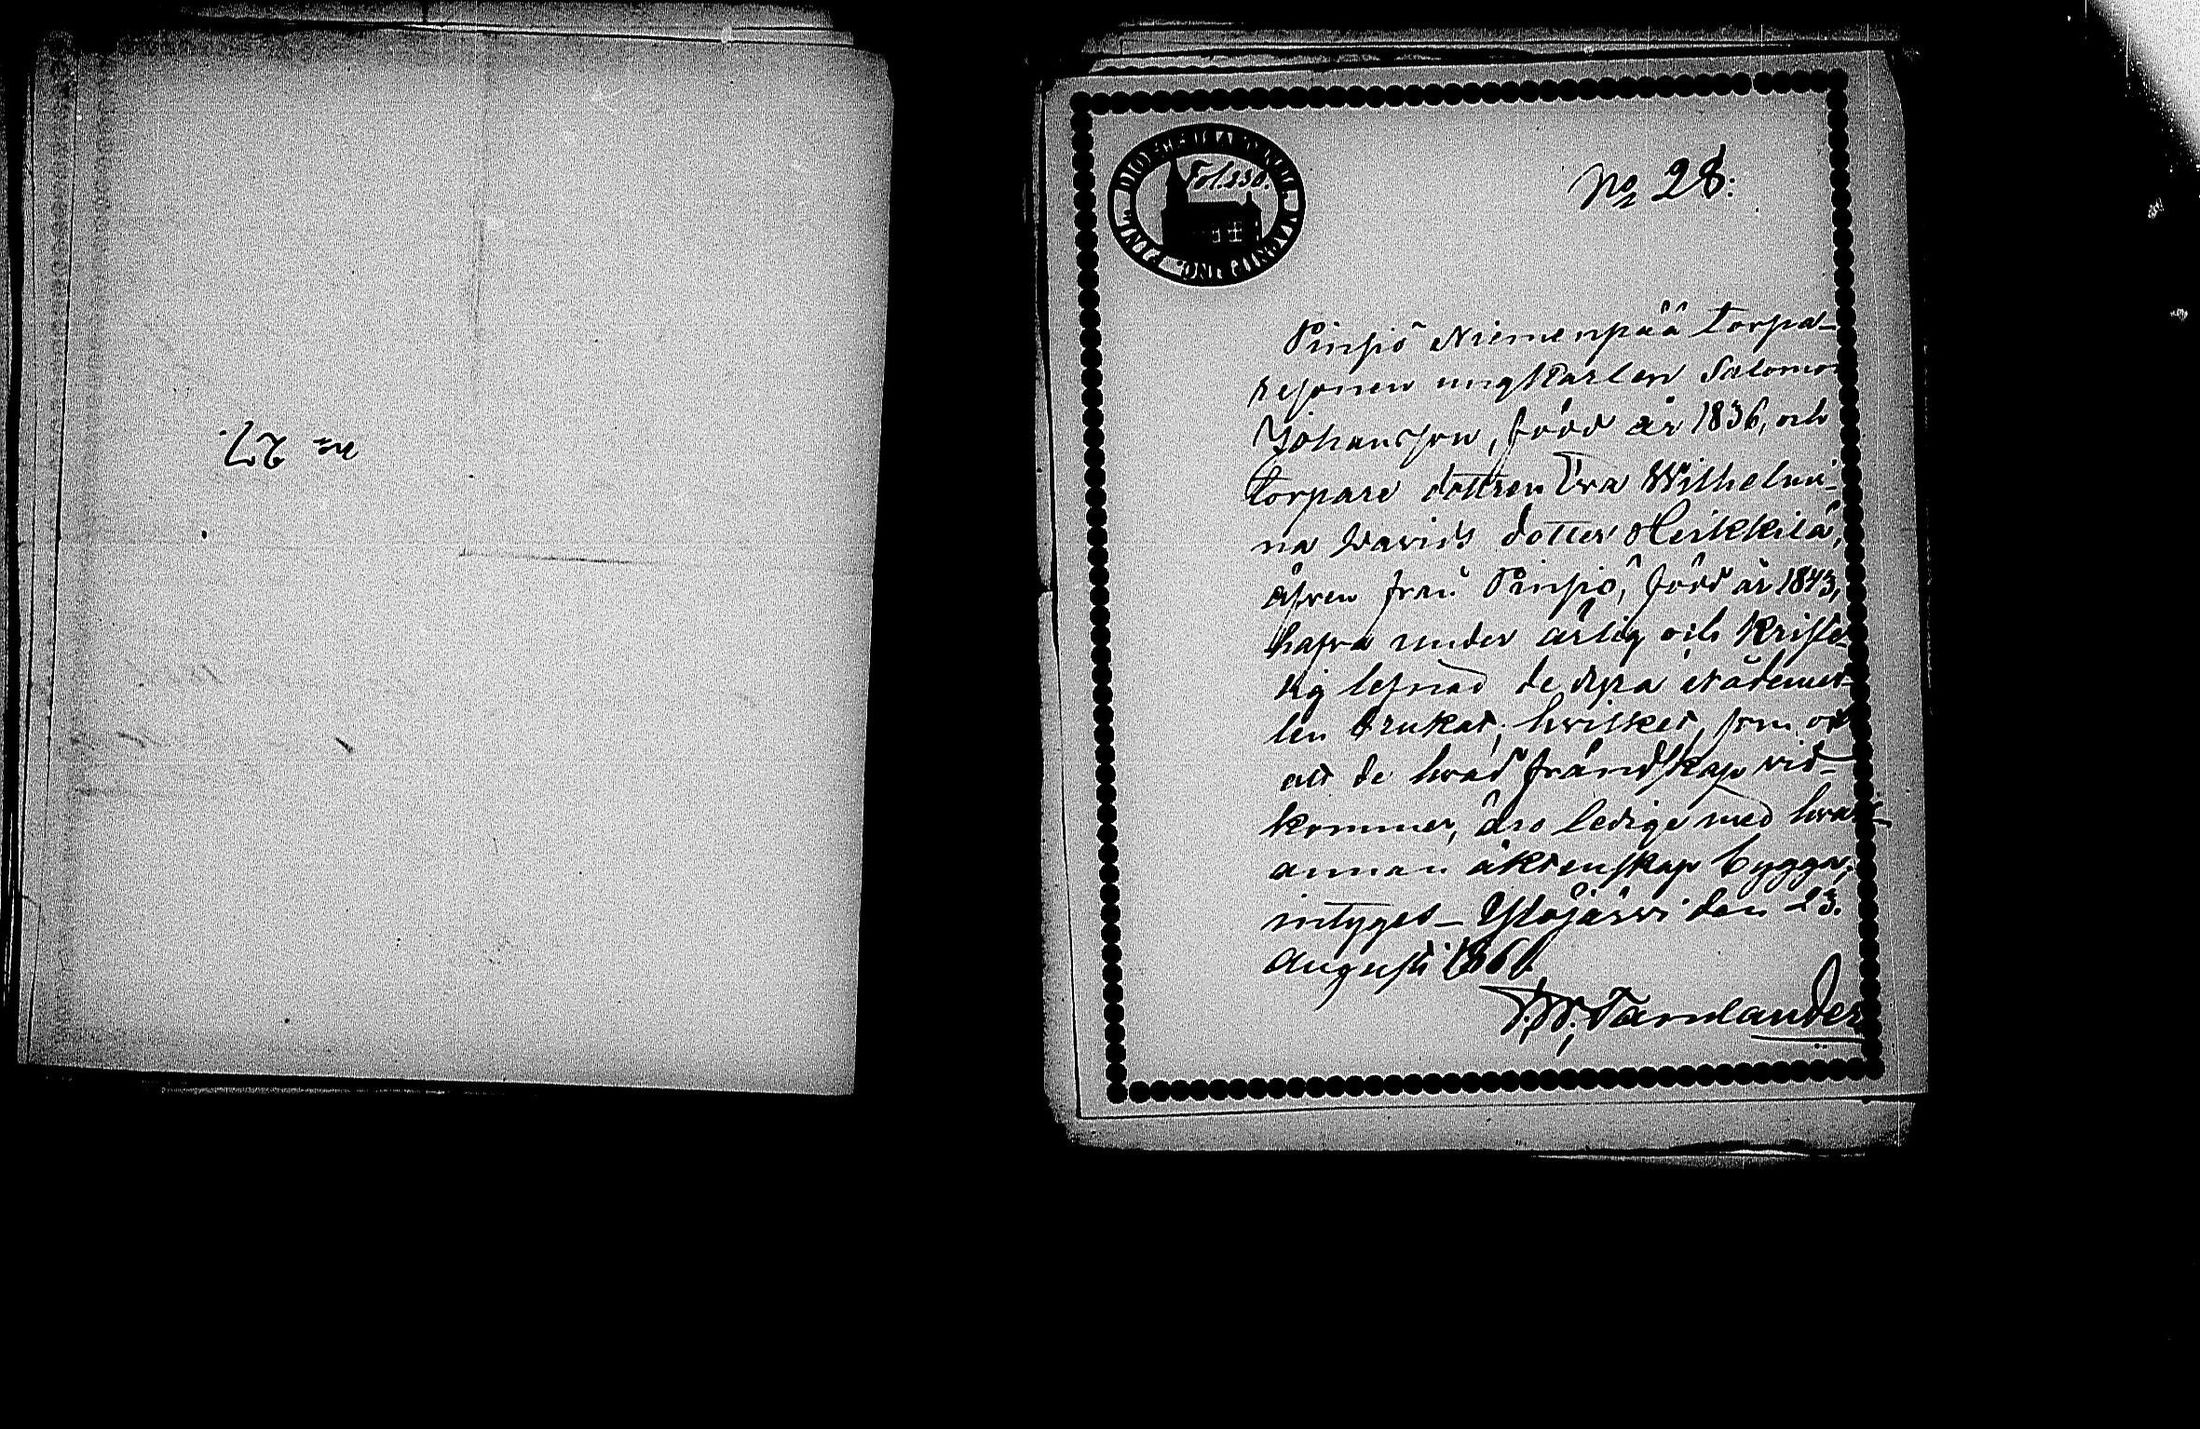 № 27.
Fol. 330.
№ 28.
Pinsiö Niemenpää torpa-
resonen ungkarlen Salomon
Johansson, född år 1836, och
torpare dottren Eva Wilhelmi-
na Davids dotter Heikkilä,
äfven från Pinsiö, född år 1843,
hafva under ärlig och kriste-
lig lefnad de dyra nådemed-
len brukat; hvilket, som ock
att de hvad frändskap vid-
kommer, äro ledige med hvar-
annan äktenskap bygga,
intygas Ylöjärvi den 23.
Augusti 186
Tamlander